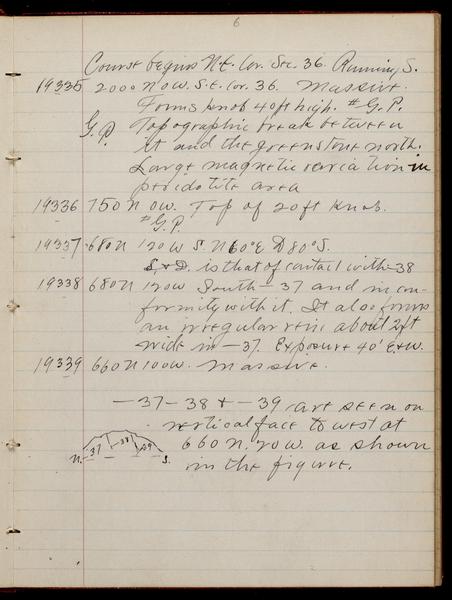 6
Course begins N.E. Cor. Sec. 36. Running S.
19335 2000 N 0 W. S.E. Cor. 36. Massive.
Forms knob 40 ft high. # G.P.
G.P. Topographic break between
it and the greenstone north.
Large magnetic variation in
peridotite area
19336 750 N 0 W. Top of 20 ft knob.
# G.P.
19337 680 N 120 W S. N 60° E D 80° S.
S. & D. is that of contact with -38
19338 680 N 120 W South -37 and in con-
formity with it. It also forms
an irregular vein about 2 ft
wide in -37. Exposure 40' E & W.
19339 660 N 100 W. Massive.
-37 -38 & -39 are seen on
vertical face to west at
660 N. 70 W. as shown
in the figure.
N. -37 -38 -39 S.